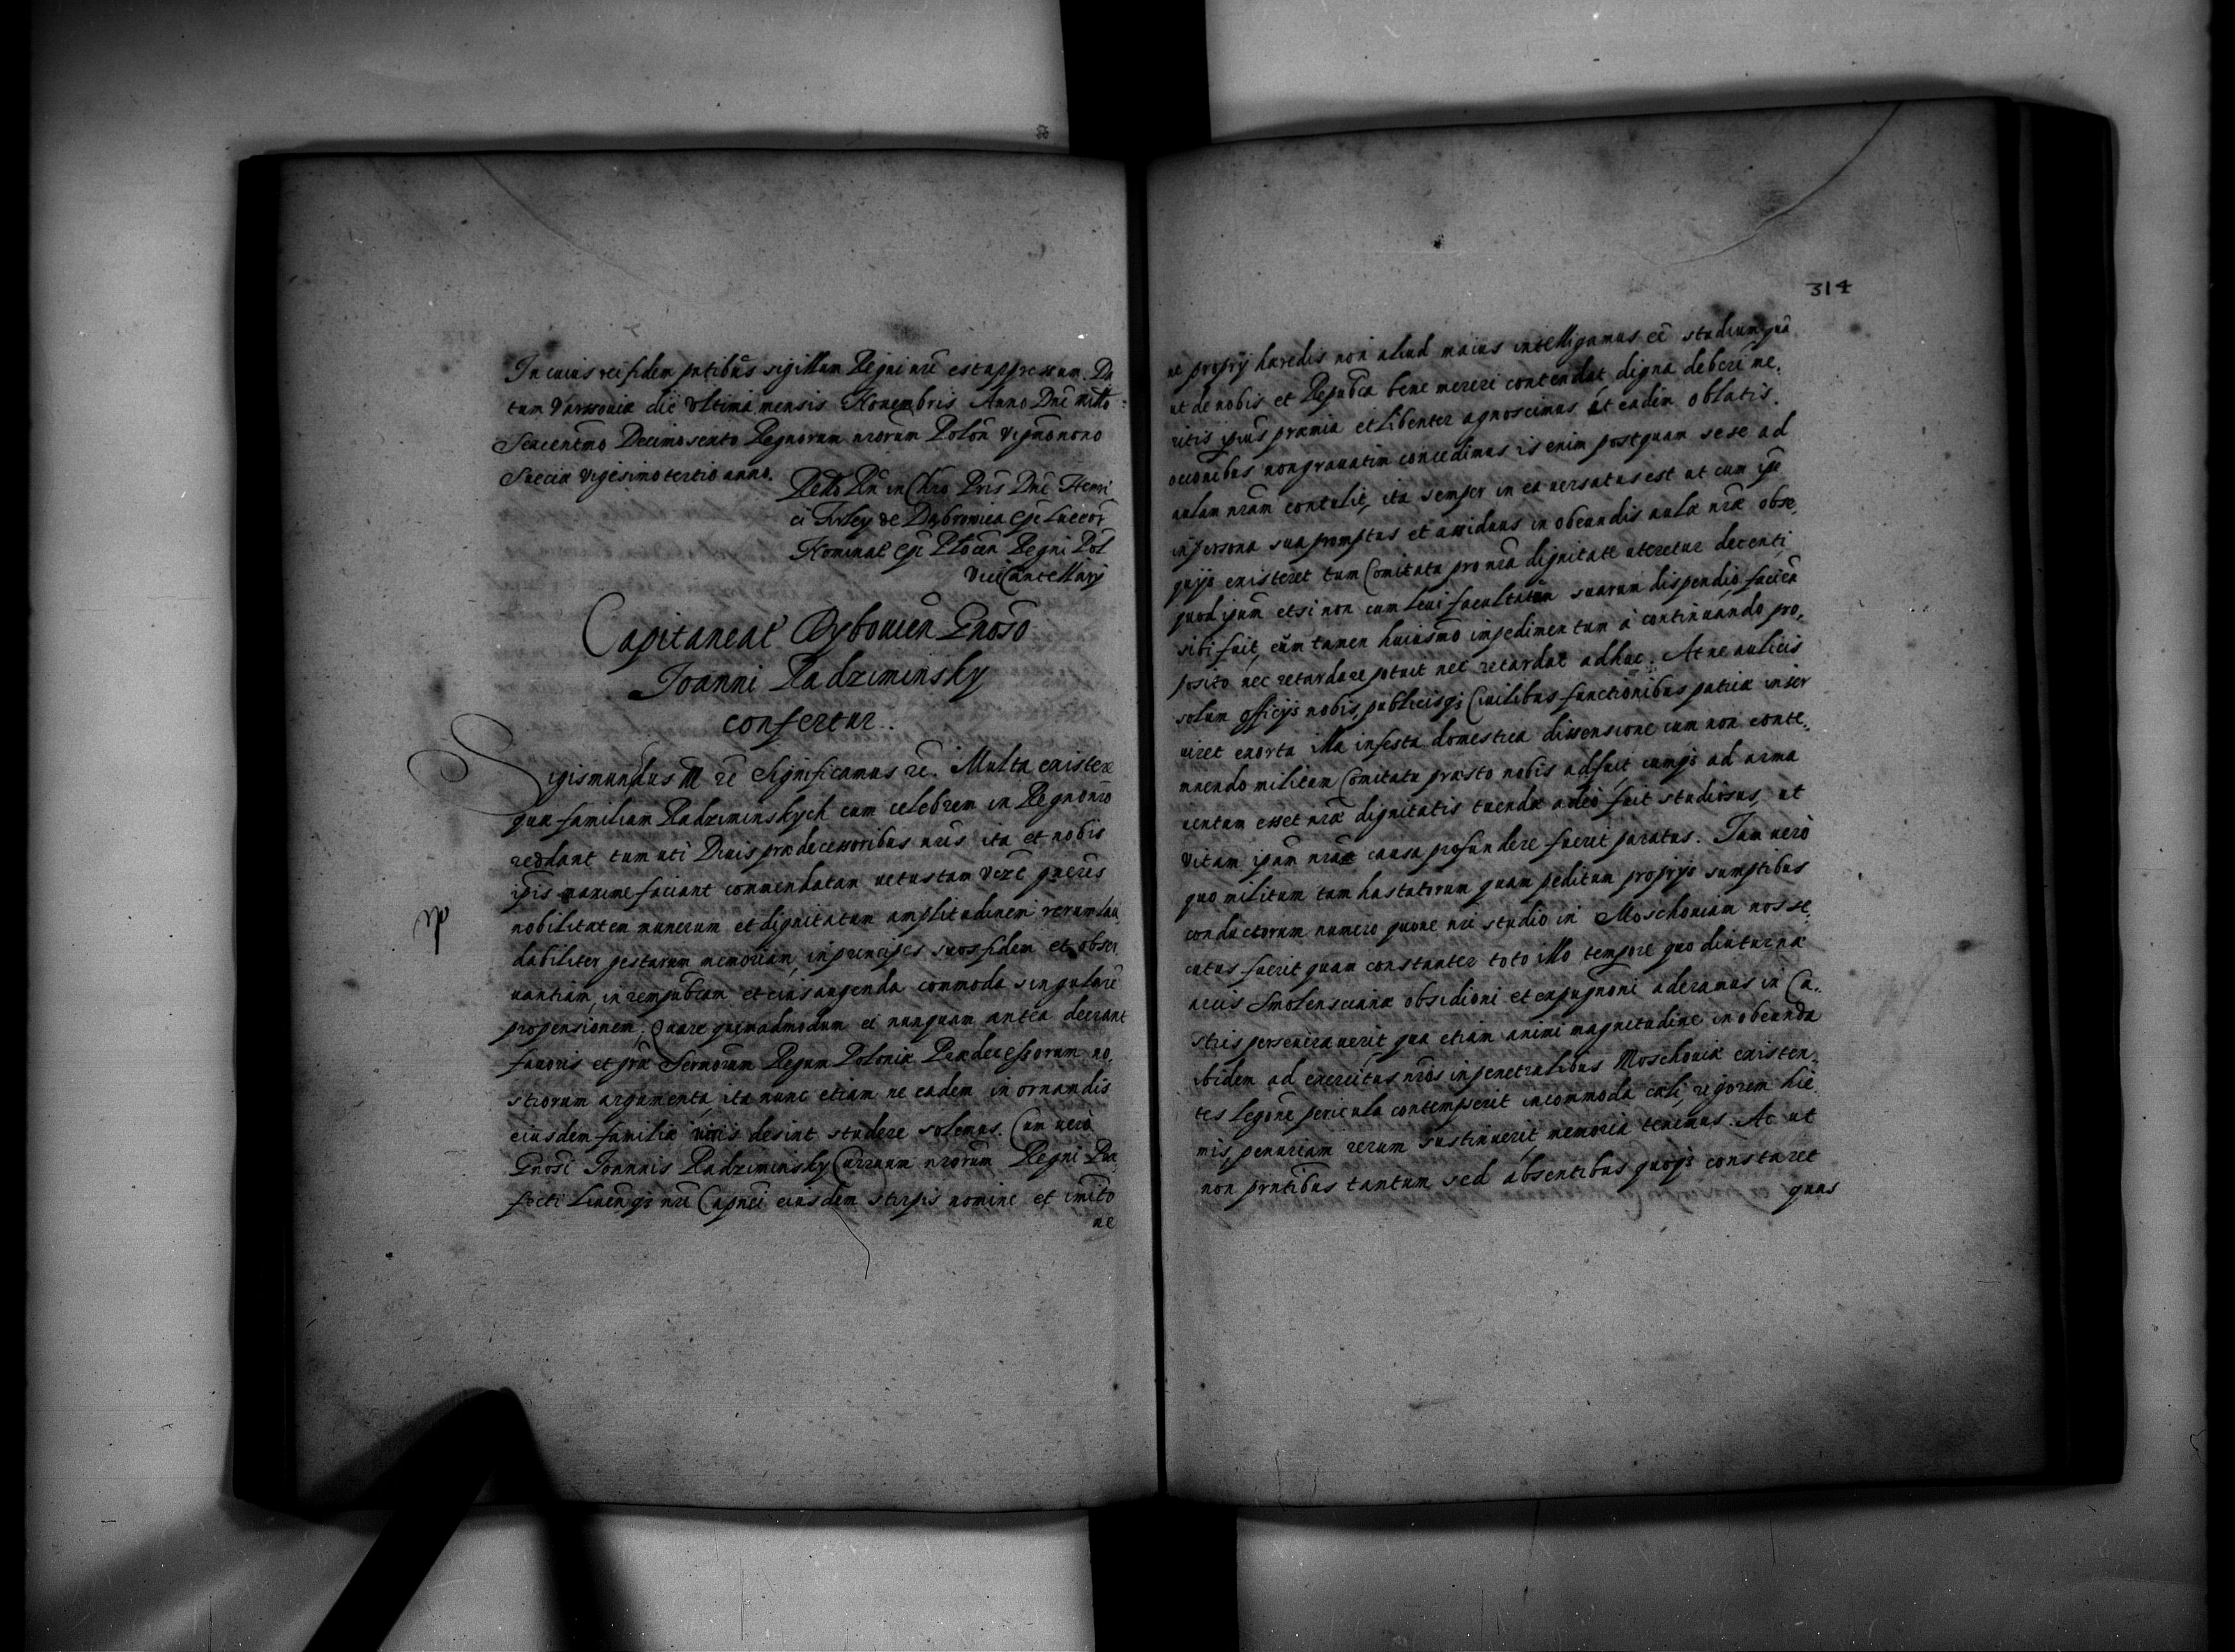 In cuius rei fidem pñtibus sigillum Regni nr̃i est appressum. Da
tum Varsoviæ die Vltima mensis Nouembris Anno Dñi millo
Sexcentmo Decimosexto Regnorum nrorum Polon̄ Vigmonono
Sueciæ Vigesimotertio anno.
Rello Rn̄ in Chro Pris Dn̄i Henri
ci Firley de Dąbrowica Epĩ Luceor̄
Nominat Epĩ Plocen Regni Pol
Vicecancellarÿ
Capitaneat Rybouien Gnoso
Ioanni Radziminsky
confertur.
Sigismundus III rc̃ Significamus rc̃. Multa existere
quæ familiam Radziminskych cum celebrem in Regno nro
reddant tum uti Diuis prædecessoribus nris ita et nobis
ipis maxime faciant commendatam uetustam Vizc̃ generis
nobilitatem munerum et dignitatum amplitudinem rerum lau
dabiliter gestarum memoriam, in principes suos fidem et obser
uantiam, in rempubcam et eius augenda commoda singularẽ
propensionem. Quare quemadmodum ei nunquam antea deerant
fauoris et græ Sermorum Regum Poloniæ Prædecessorum no,
strorum argumenta, ita nunc etiam ne eadem in ornandis
eiusdem familiæ viris desint studere solemus. Cum uero
Gnosi Ioannis Radziminsky Curruum nrorum Regni Præ
fecti Liuengs nri Capnei eiusdem stirpis nomine et imito
ne
314
ne proprÿ hæredis non aliud maius intelligamus eẽ studium quã
ut de nobis et Repubca bene mereri contendat digna deberi me,
ritis ipius præmia et libenter agnoscimus et eadem oblatis
occionibus non grauatim concedimus is enim postquam sese ad
aulam nram contulit, ita semper in ea uersatus est ut cum ipe
in persona sua promptus et assiduus in obeundis aulæ nræ obse,
quÿs existeret tum Comitatu pro nra dignitate uteretur decenti
quod ipum etsi non cum leui facultatum suarum dispendio
sibi fuit, eum tamen huiusmo impedimentum à continuando pro,
posito nec retardare potuit nec retardat adhuc. At ne aulicis
solum officÿs nobis, publicisq; Ciuilibus functionibus patriæ inser
uiret exorta illa infesta domestica dissensione cum non conte,
mnendo militum Comitatu præsto nobis adfuit cumq; ad arma
uentum esset nræ dignitatis tuendæ adeo fuit studiosus, ut
Vitam ipam nra causa profundere fuerit paratus. Iam uero
quo militum tam hastatorum quam peditum proprÿs sumptibus
conductorum numero quoue nri studio in Moschouiam nos se,
cutus fuerit quam constanter toto illo tempore quo diuturnæ
arcis Smolenscianæ obsidioni et expugnoni aderamus in Ca,
stris perseuerauerit qua etiam animi magnitudine in obeunda
ibidem ad exercitus nros in penetralibus Moschouiæ existen,
tes Legone pericula contempserit incommoda cæli, rigorem hie
mis, penuriam rerum sustinuerit, memoria tenemus. Ac ut
non prntibus tantum sed absentibus quoq; constaret
quas